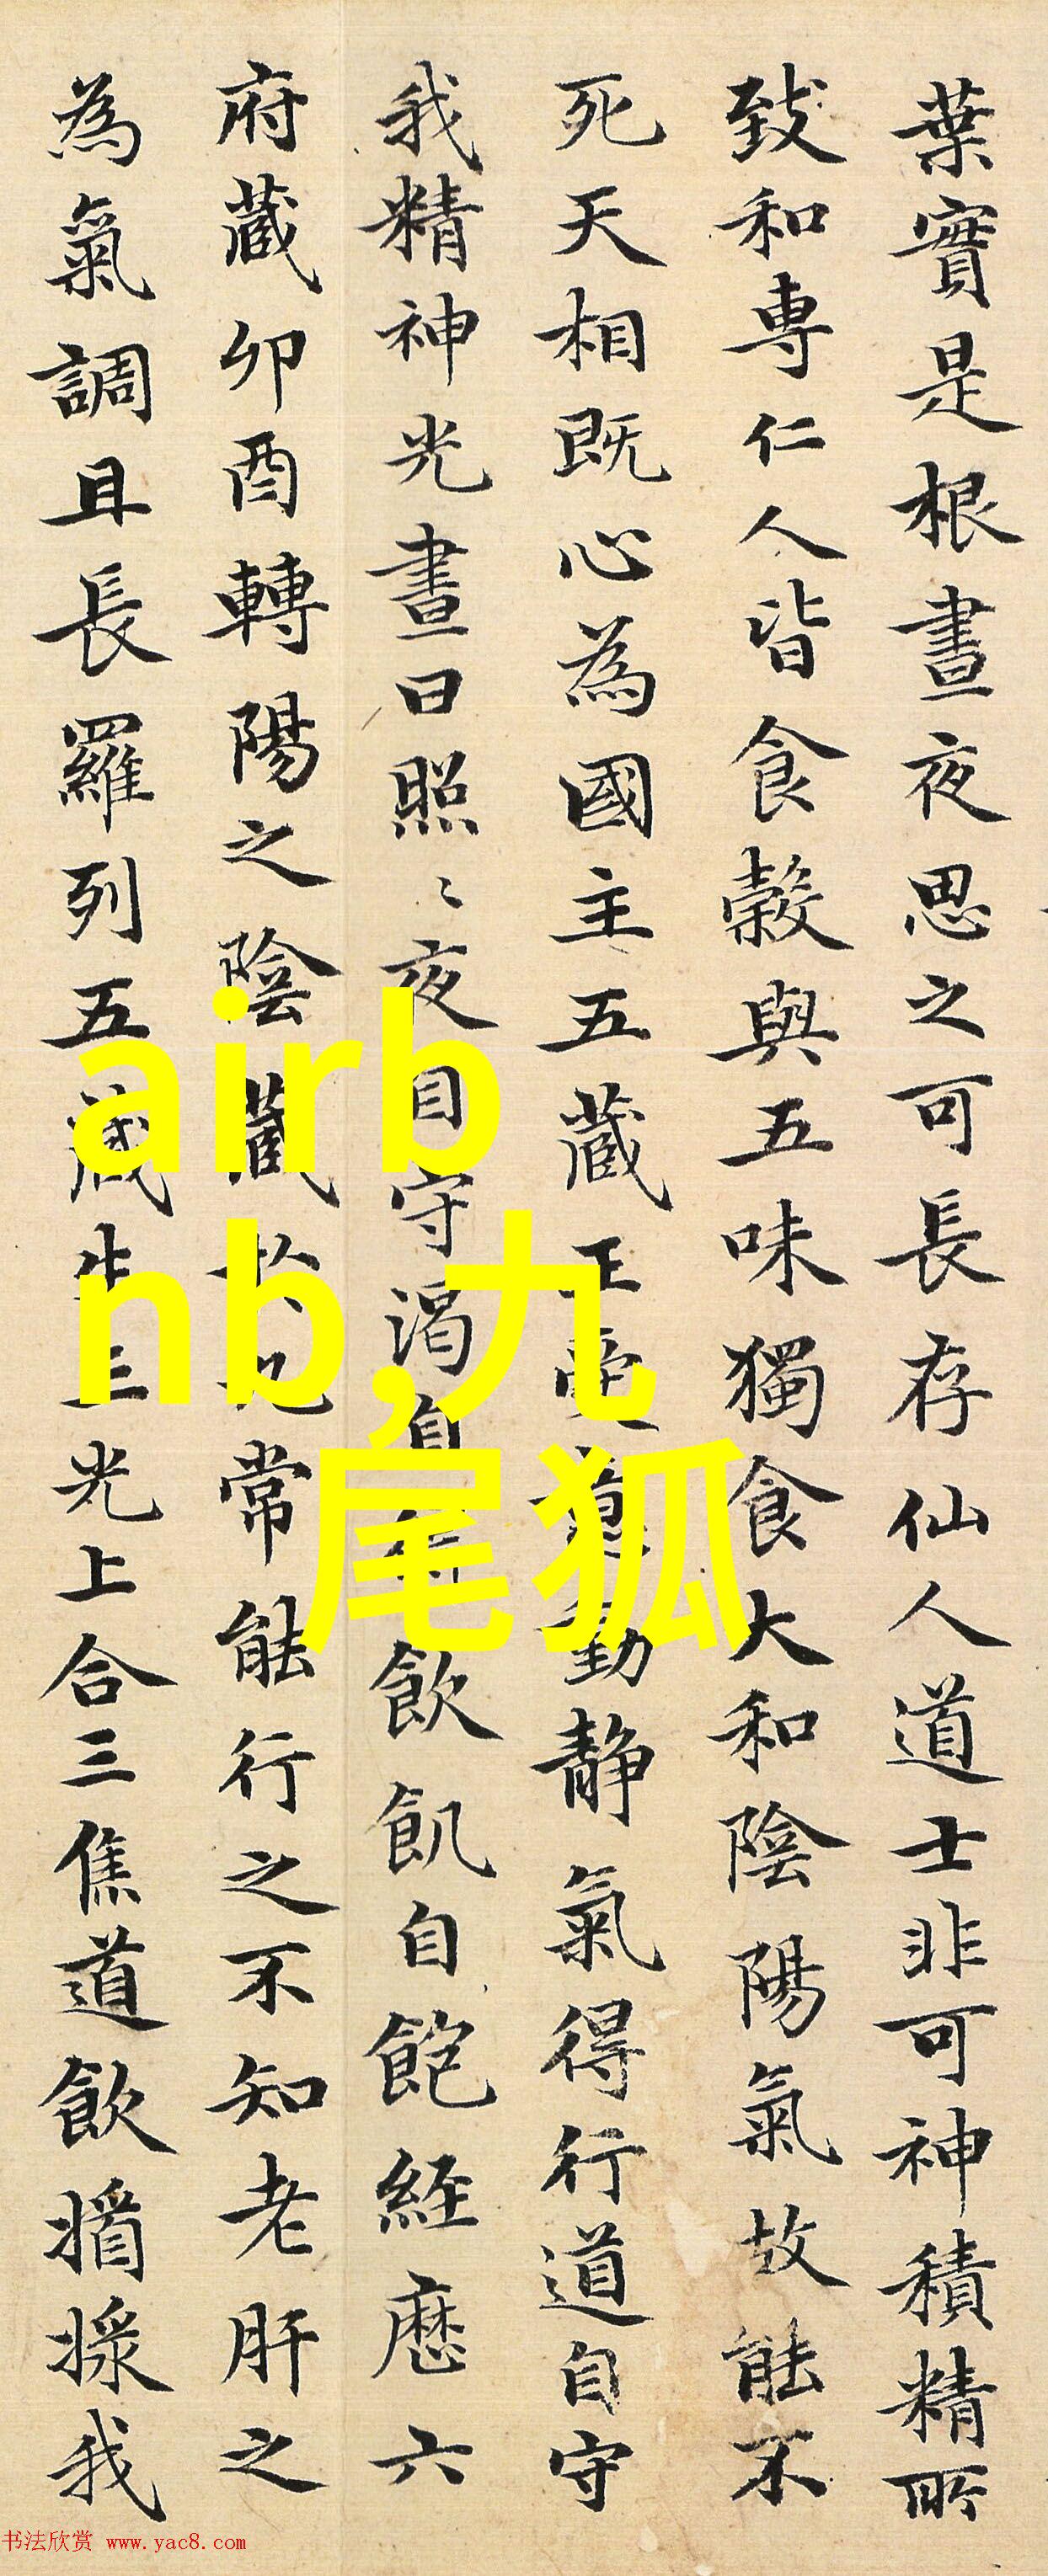 葉實是根晝夜思之可長存仙人道士非可神積精所
致和專仁人皆食穀與五味獨食大和陰陽氣故能不
死天相既心為國主五藏王受意動静氣得行道自守
我精神光晝日照〻夜自守渴自飲飢自飽經歷六
府藏卯酉轉陽之陰藏常能行之不知老肝之
為氣調且長羅列五藏生三光上合三焦道飲醬漿我
airb
nb,九
尾狐
书法欣赏 www.yac8.com